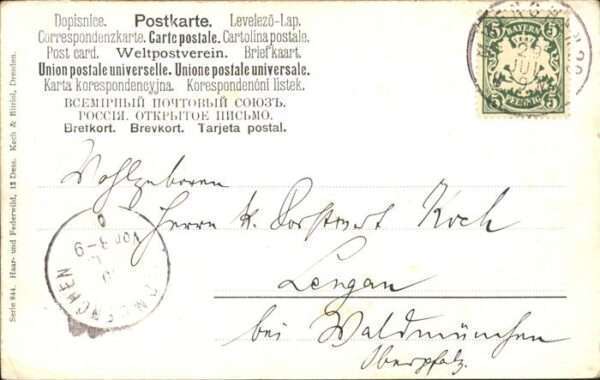 Dopisnice. Postkarte. Levelező-Lap.
Correspondenzkarte. Carte postale. Cartolina postale.
Post card. Weltpostverein. Brief kaart.
Union postale universelle. Unione postale universale.
Karta korespondencyjna. Korespondenční lístek.
ВСЕМІРНЫЙ ПОЧТОВЫЙ СОЮЗЪ.
РОССІЯ. ОТКРЫТОЕ ПИСЬМО.
Bretkort. Brevkort. Tarjeta postal.
5 BAYERN 5
PFENNIG
Wohlgeboren
Herrn K. Forstwart Koch
Lengau
bei Waldmünchen
Oberpfalz.
Vor. 8-9
Serie 844. Haar- und Federwild, 12 Dess. Kech & Bitriol, Dresden.